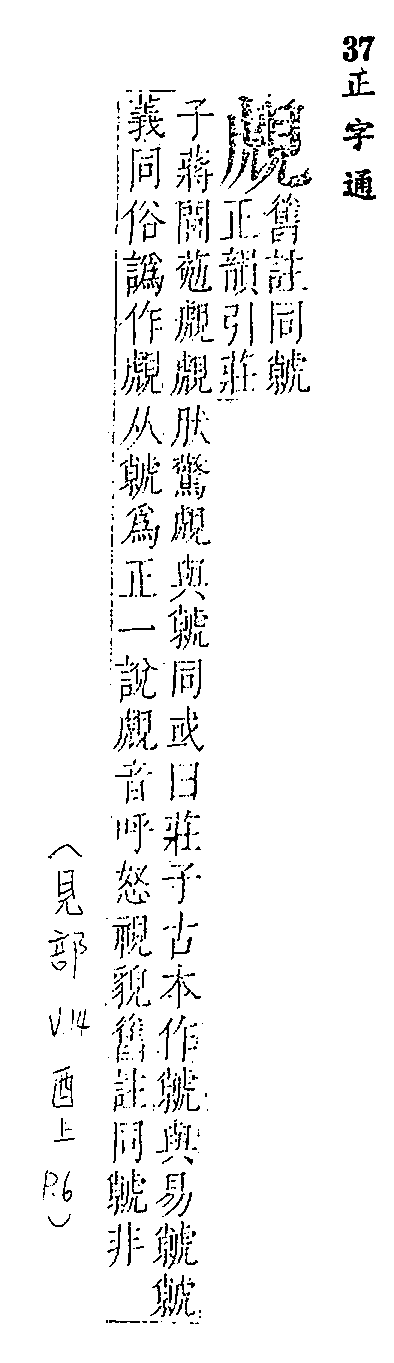 37 正字通
覤
舊註同虩
正韻引莊
子蔣閭葂覤覤肰驚覤與虩同或曰莊子古本作虩與易虩虩
義同俗譌作覤从虩爲正一說覤音呼怒視貌舊註同虩非
(見部 V.14 酉上 P.6)